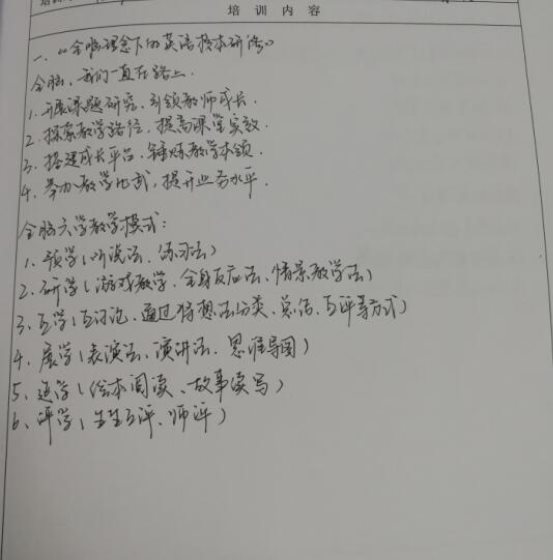 培训内容
一、"全脑理念下的英语校本研修"
全脑，我们一直在路上.
1. 开展课题研究，引领教师成长.
2. 探索教学路径，提高课堂实效.
3. 搭建成长平台，锤炼教学本领.
4. 举办教学比武，提升业务水平.
全脑六学教学模式：
1. 预学（听说法、练习法）
2. 研学（游戏教学、全身反应法、情景教学法）
3. 互学（互讨论、通过猜想法分类、总结、互评等方式）
4、展学（表演法、演讲法、思维导图）
5、延学（绘本阅读、故事读写）
6、评学（生生互评、师评）